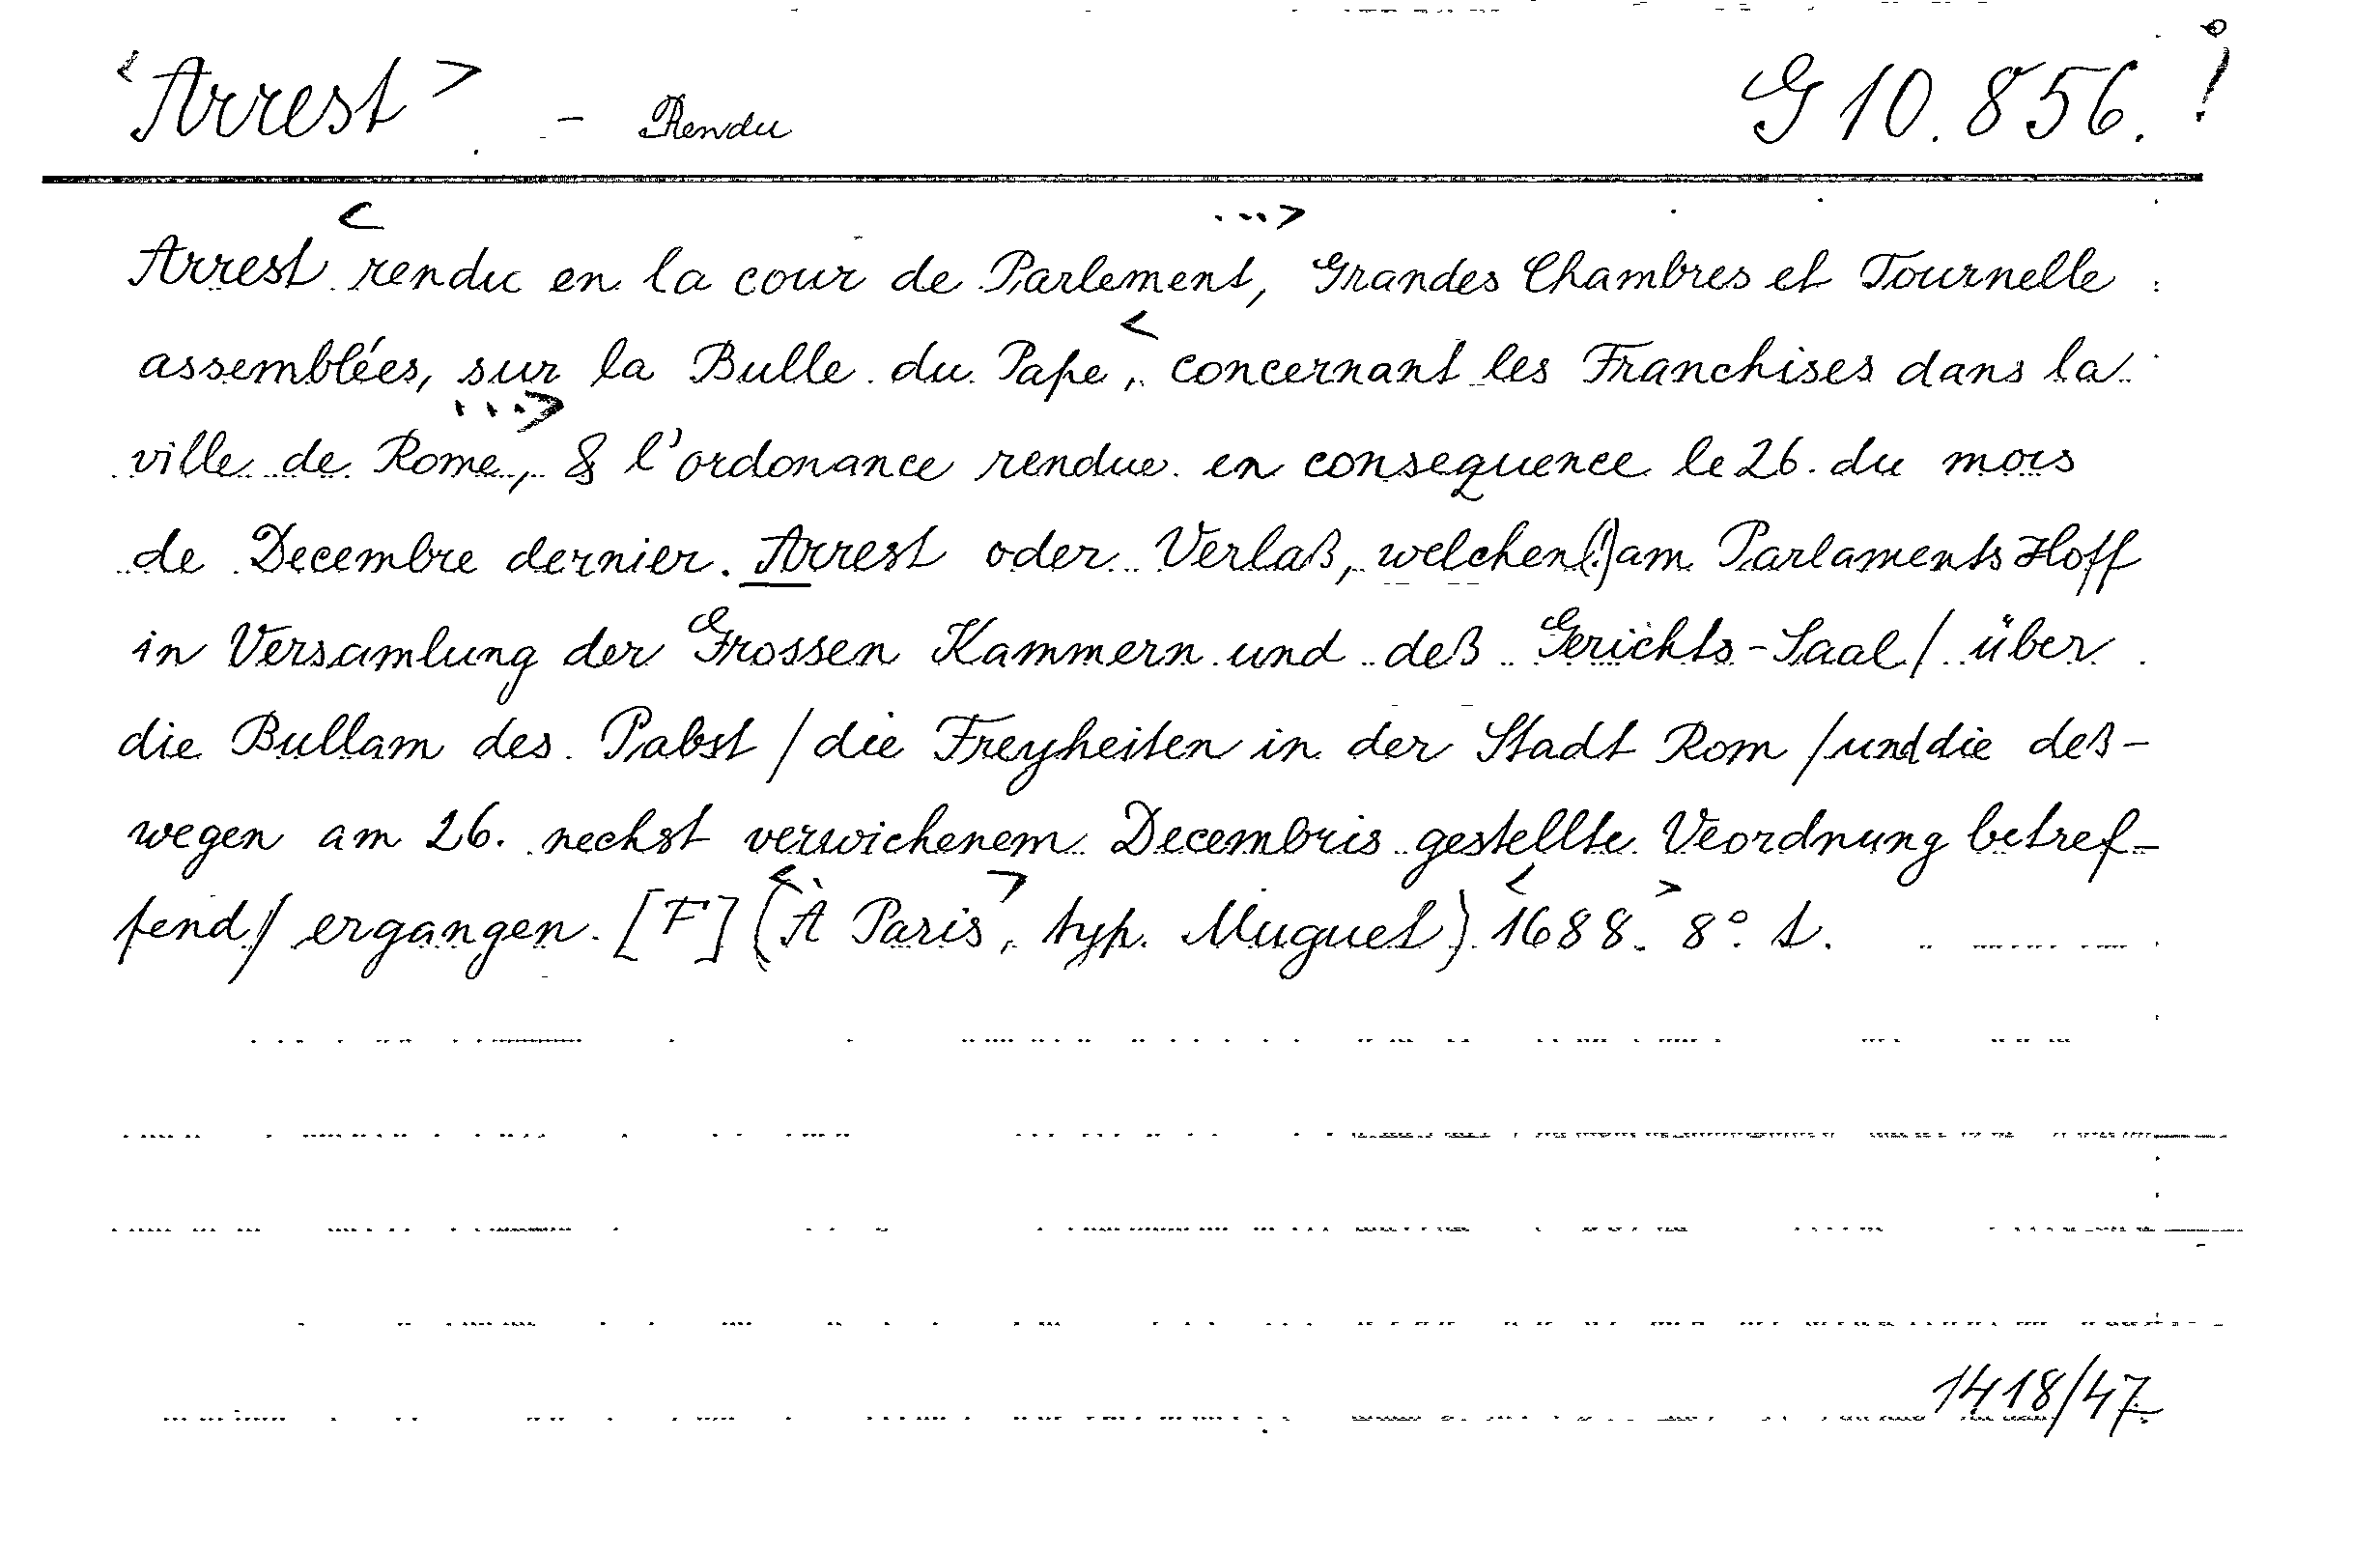 <Arrest> - Rendu G 10.856. !
Arrest rendu en la cour de Parlement, Grandes Chambres et Tournelle
assemblées, sur la Bulle du Pape, concernant les Franchises dans la
ville de Rome, & l'ordonance rendue en consequence le 26. du mois
de Decembre dernier. Arrest oder Verlaß, welchen(!) am Parlaments Hoff
in Versamlung der Grossen Kammern und deß Gerichts-Saal/ über
die Bullam des Pabst / die Freyheiten in der Stadt Rom / und die deß-
wegen am 26. nechst verwichenem Decembris gestellte Veordnung betref-
fend/ ergangen. [F] (A Paris, typ. Muguet) 1688. 8° t.
1418/47